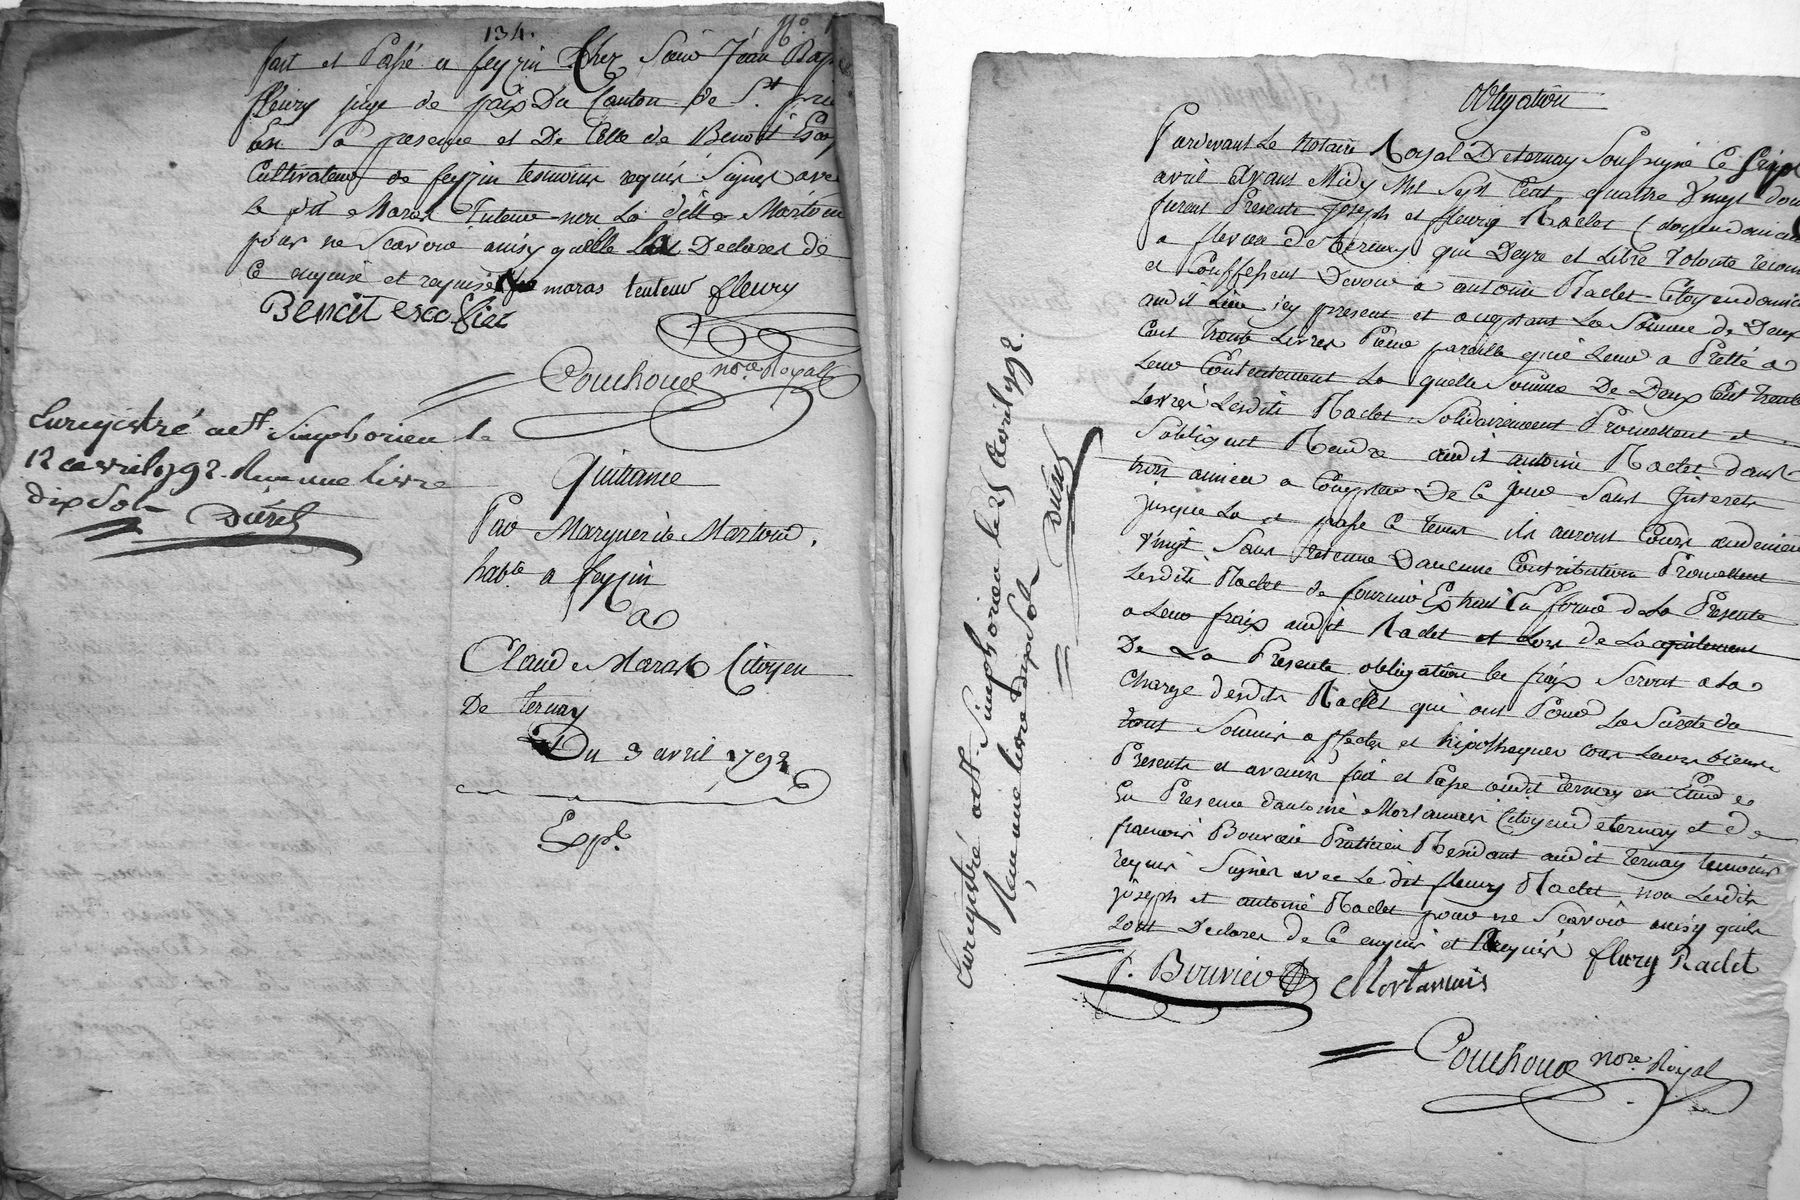 134.
fait et Passé a feyzin Chez Sieur Jean Bap
fleury juge de paix Du Canton de St.
En Sa presence et De Celle de Benoit
Cultivateur de feyzin temoins requis Signés avec
le dit Maras tuteur non La ditte Martoud
pour ne Scavoir ainsy quelle La Declarez de
Ce enquise et requise maras tenteur fleury
Benoit escoffier
Couchoud nore Royal
Enregistré a St Simphorien le
12 avril 1792. Reçu une livre
dix Sols Duret
Quittance
Par Marguerite Martoud,
habte a feyzin
a
Claude Maras Citoyen
De ternay
Du 3 avril 1792
Expl.
Obligation
Pardevant Le Notaire Royal De ternay Soussigné Ce
avril avant Midy Mil Sept Cent quatre Vingt
furent Presents Joseph et fleury Raclet Citoyen
a de qui Degre et Libre Volonté
et Confessent Devoir a antoine Raclet Citoyen
audit Lieu icy present et acceptant La Somme de Deux
Cent Trente Livres Pour pareille quil Leur a Pretté a
Leur Contentement La quelle Somme De Deux Cent Trente
Livres Lesdits Raclet Solidairement Promettent et
Sobligent Rendre audit antoine Raclet dans
trois années a Compter De Ce jour Sans Interets
jusques La et passé Ce terme ils auront Cours au denier
Vingt Sans retenue Daucune Contribution Promettent
Lesdits Raclet de fournir Extrait En forme de La Presente
a Leur fraix audit Raclet et Lors de
De La Presente obligation les fraix Seront a La
Charge desdits Raclet qui ont Pour La Sureté du
tout Soumis affecter et hipothequer tous Leurs biens
Presents et avenir fait et Passé audit ternay en Etude
En Presence dantoine Mortamais Citoyen de ternay et de
francois Bouvier Praticien Residant audit ternay temoins
requis Signés avec Le dit fleury Raclet non Lesdits
joseph et antoine Raclet pour ne Scavoir ainsy quils
Lont Declarez de Ce enquis et Requis fleury Raclet
f. Bouvier Mortamais
Couchoud nore Royal
Enregistré a St Simphorien le 25 avril 1792.
Reçu une livre dix Sols Duret